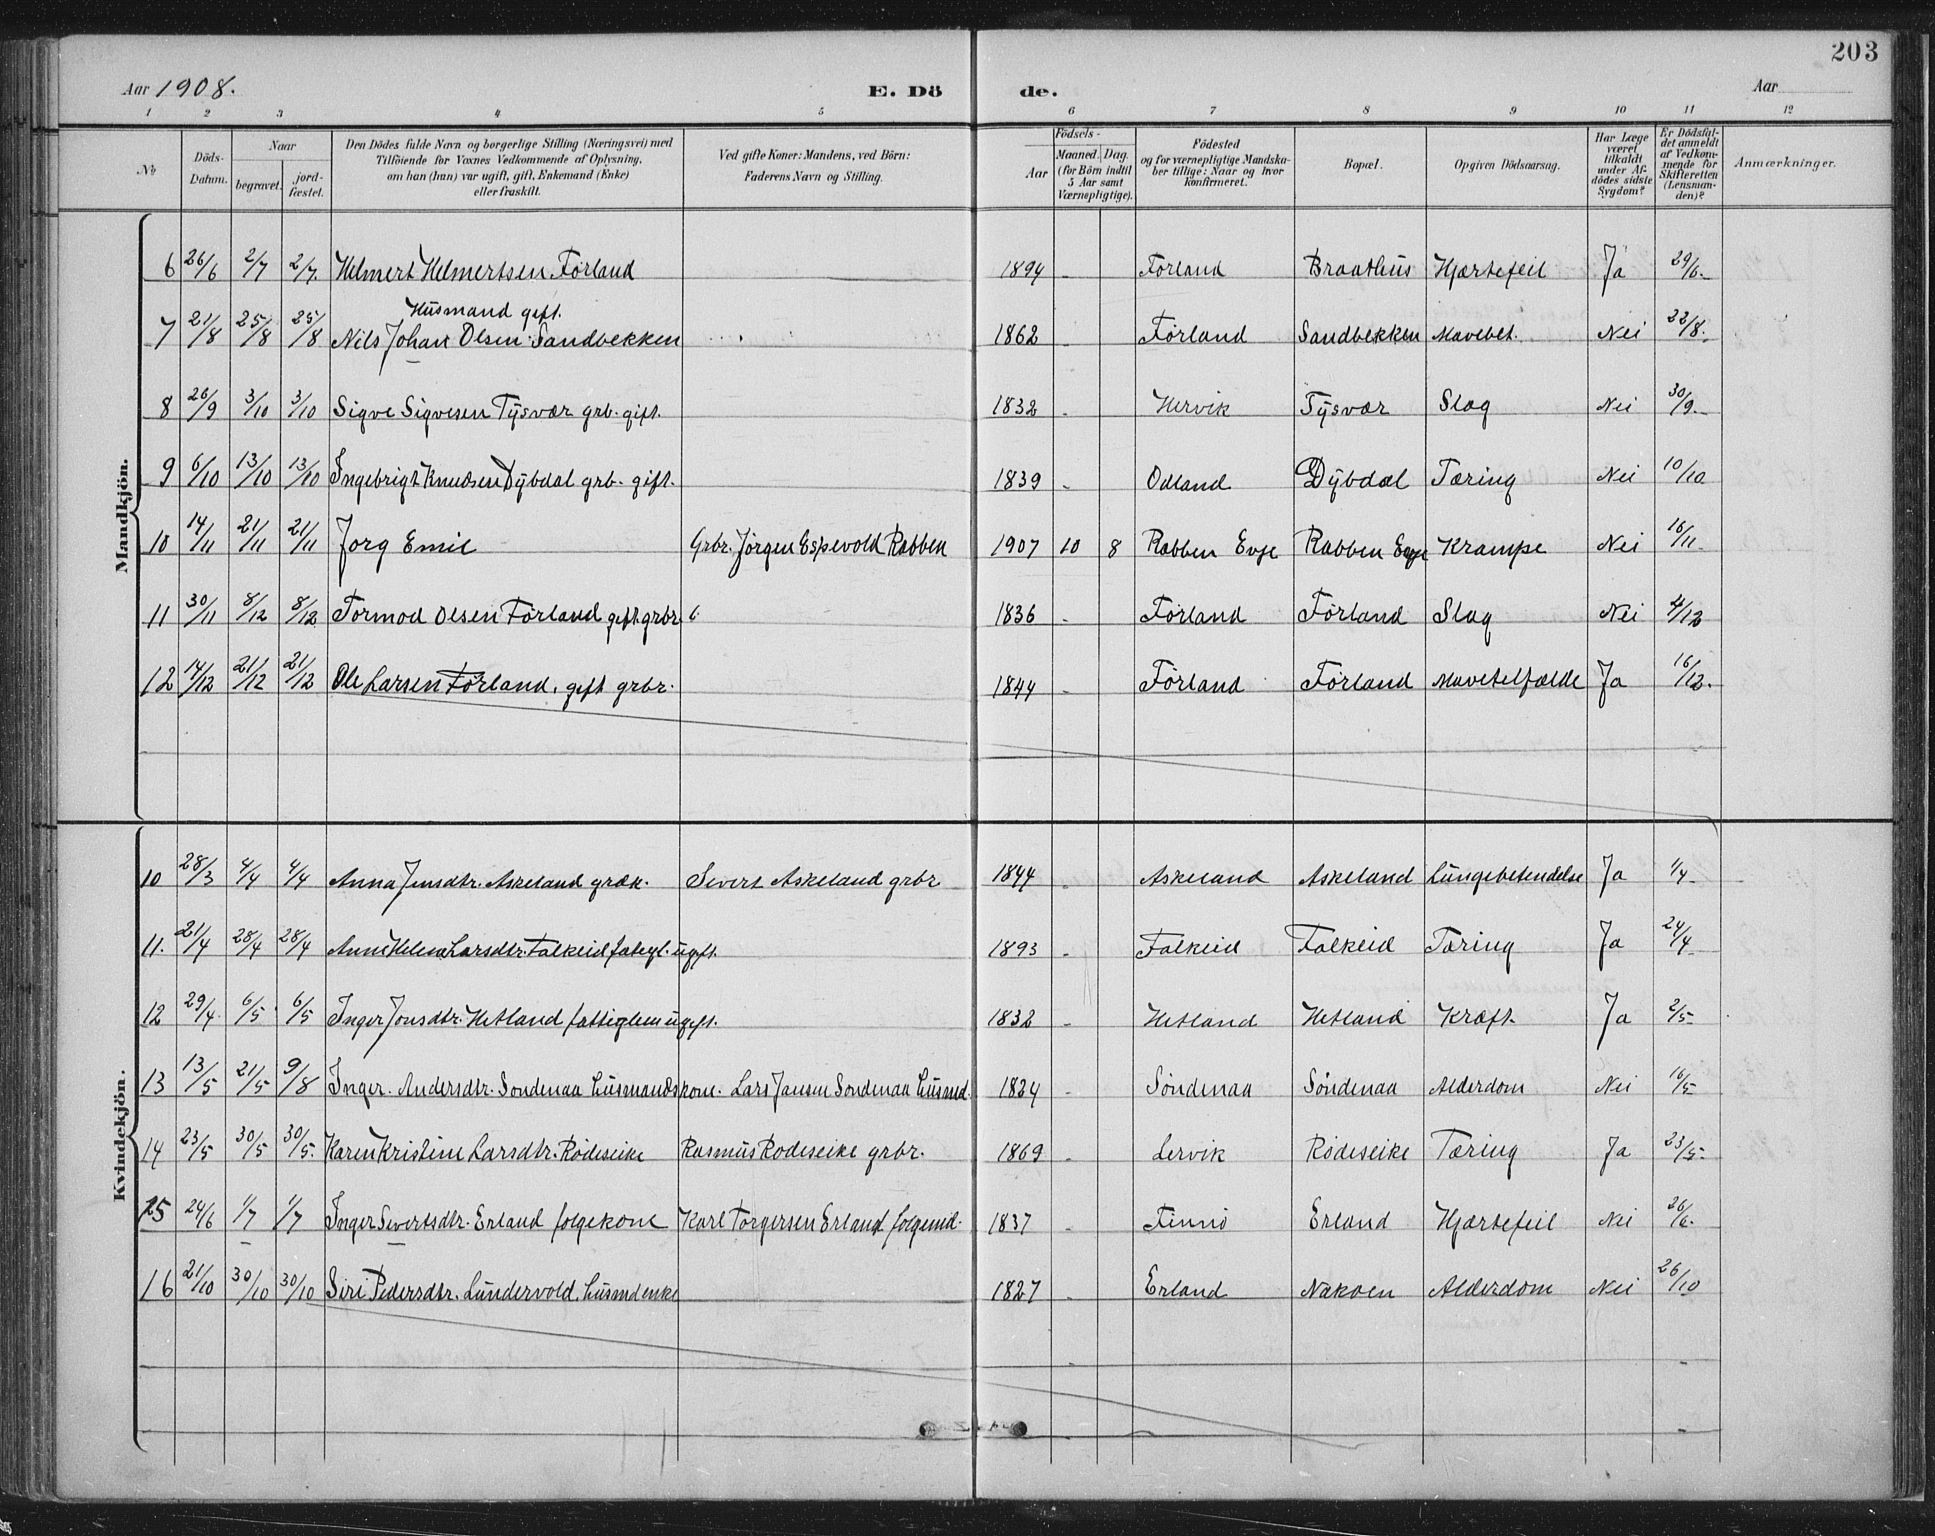 203
Aar 1908. E. Dö de. Aar
1 2 3 4 5 6 7 8 9 10 11 12
№ Döds-Datum. Naar begravet. jord-fæstet. Den Dödes fulde Navn og borgerlige Stilling (Næringsvei) med Tilföiende for Voxnes Vedkommende af Oplysning, om han (hun) var ugift, gift, Enkemand (Enke) eller fraskilt. Ved gifte Koner: Mandens, ved Börn: Faderens Navn og Stilling. Födsels- Aar Maaned. Dag. (for Börn indtil 5 Aar samt Værnepligtige). Födested og for værnepligtige Mandskaber tillige: Naar og hvor konfirmeret. Bopæl. Opgiven Dödsaarsag. Har Læge været tilkaldt under Afdödes sidste Sygdom? Er Dödsfaldet anmeldt af Vedkommende for Skifteretten (Lensmanden)? Anmærkninger.
Mandkjön.
6 26/6 2/7 2/7. Helmert Helmertsen Førland 1894 - Førland Braathus Hjærtefeil Ja 29/6-
Husmand gift.
7 21/8 25/8 25/8 Nils Johan Olsen Sandbekken 1862 - Førland Sandbekken Mavebet. Nei 22/8.
8 26/9 3/10 3/10 Sigve Sigvesen Tysvær grb. gift. 1832 - Hervik Tysvær Slag Nei 30/9.
9 6/10 13/10 13/10 Ingebrigt Knudsen Dybdal grb. gift. 1839 - Odland Dybdal Tæring Nei 10/10
10 14/11 21/11 21/11 Jorg Emil Grbr. Jörgen Espevold Robben 1907 10 8 Robben Evje Robben Evje Krampe Nei 16/11.
11 30/11 8/12 8/12 Tormod Olsen Førland gift grbr. 1836 - Førland Førland Slag Nei 4/12
12 14/12 21/12 21/12 Ole Larsen Førland. gift grbr. 1844 - Førland Førland Mavetilfælde Ja 16/12.
Kvindekjön.
10 28/3 4/4 4/4 Anna Jensdtr. Askeland græk. Sivert Askeland grbr 1844 - Askeland Askeland Lungebetendelse Ja 1/4-
11. 21/4 28/4 28/4 Anne Helene Larsdtr. Falkeid fategl. ugift. 1893 - Falkeid Falkeid Tæring Ja 24/4
12 29/4 6/5 6/5 Inger Jonsdtr. Hetland fattiglem ugift. 1832 - Hetland Hetland Kræft. Ja 2/5-
13 13/5 21/5 9/8 Inger. Andersdtr. Søndenaa husmandskone. Lars Jansen Søndenaa husmd. 1824 - Søndenaa Søndenaa Alderdom Nei 16/5
14 23/5 30/5 30/5. Karen Kristine Larsdtr. Rødeseike Rasmus Rødeseike grbr. 1869 - Lervik Rødeseike Tæring Ja 23/5-
15 24/6 1/7 1/7 Inger Sivertsdtr. Erland følgekone Karl Torgersen Erland følgemd. 1837 - Finnø Erland Hjærtefeil Nei 26/6.
16 21/10 30/10 30/10 Siri Pedersdtr. Lundervold. husmdenke 1827 - Erland Nakoen Alderdom Nei 26/10